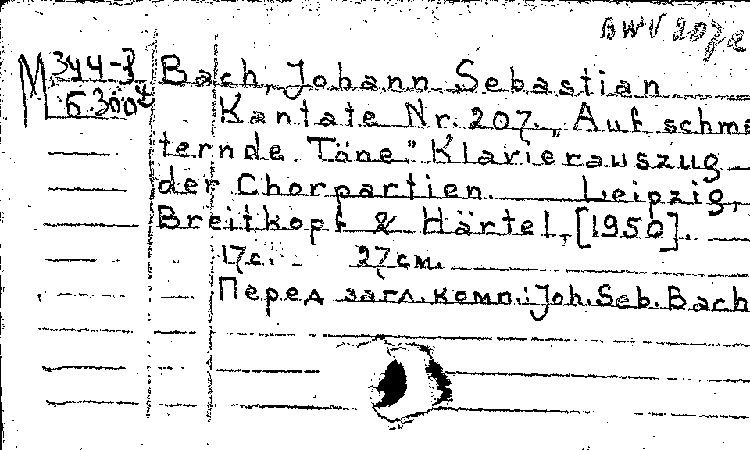 BWV 207a
М 344-3
Б.300
Bach, Johann Sebastian
Kantate Nr. 207. „Auf schme
ternde Töne" Klavierauszug
der Chorpartien. Leipzig,
Breitkopf & Härtel, [1950].
17с. 27см.
Перед загл. комп.: Joh. Seb. Bach